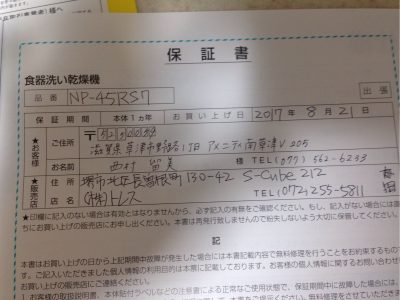 保証書
食器洗い乾燥機
品番 NP-45RS7 出張
保証期間 本体1ヵ年 お買い上げ日 2017年8月21
★お客様 ご住所 〒
滋賀県草津市 1丁目 アメニティ南草津V 205
お名前 西村 留美 様 TEL(077) 562-6233
★販売店 住所 堺市北区長曽根町130-42 S-Cube 212
店名 (株)トレス TEL(072)255-5811
★印欄に記入のない場合は有効とはなりませんから、必ず記入の有無をご確認ください。もし、記入がない場合には直
ちにお買い上げの販売店にお申し出ください。本書は再発行致しませんので紛失しないよう大切に保管してください。
記
本書はお買い上げの日から上記期間中故障が発生した場合には本書記載内容で無料修理を行うことをお約束するもので
す。ご記入いただきました個人情報の利用目的は本票に記載しております。お客様の個人情報に関するお問い合わせ
お買い上げの販売店にご連絡ください。